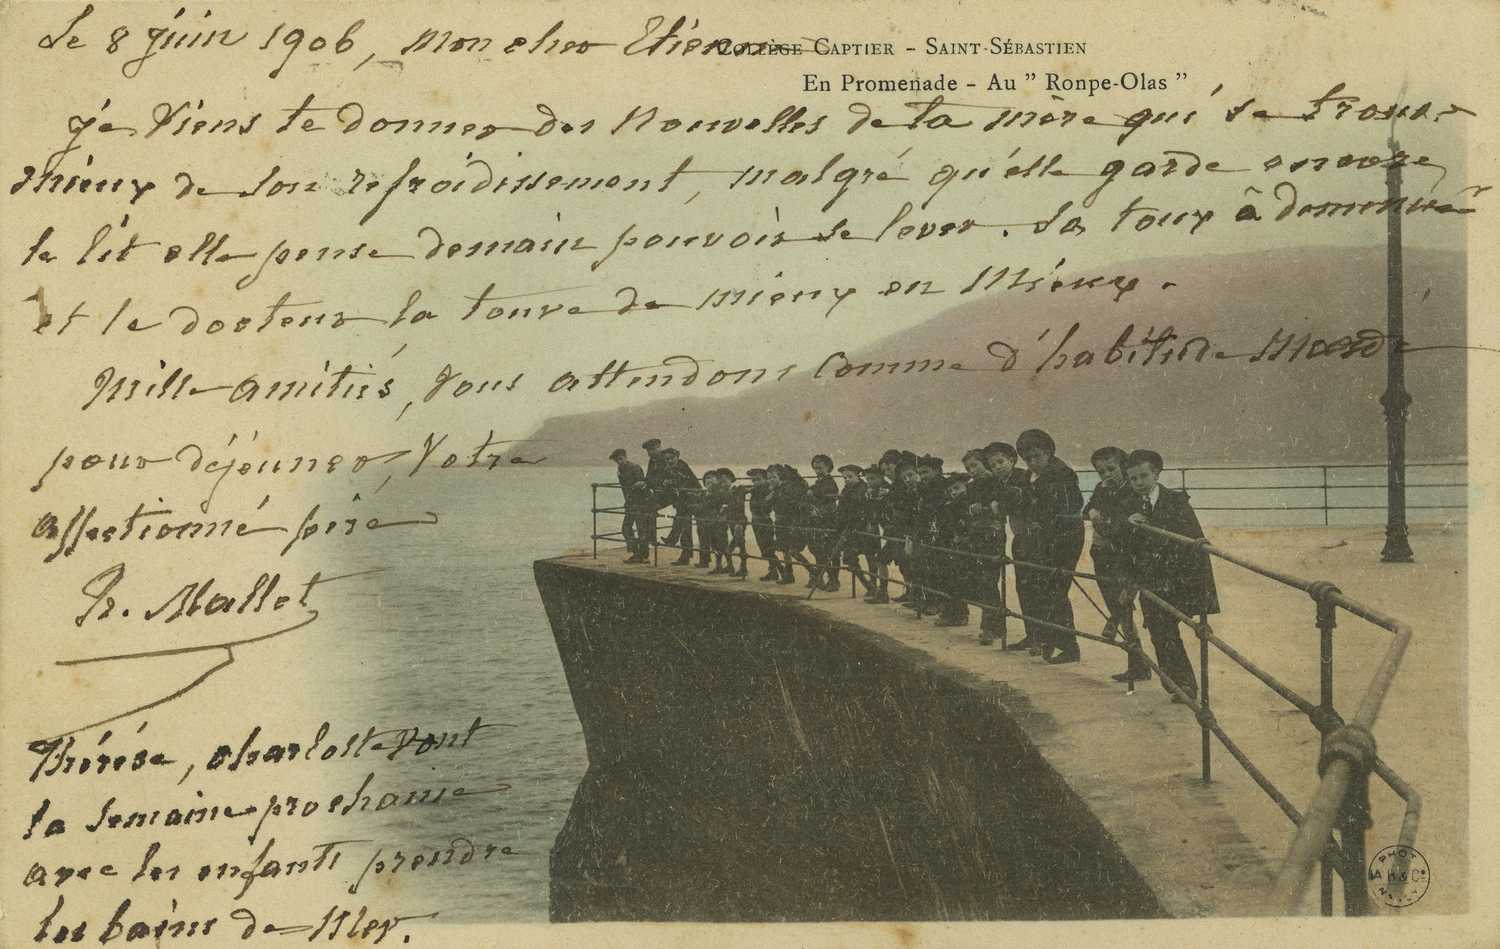 Le 8 juin 1906, Mon cher Etienne
COLLÈGE CAPTIER - SAINT-SÉBASTIEN
En Promenade - Au " Ronpe-Olas "
je viens te donner des nouvelles de ta mère qui se trouve
mieux de son refroidissement, malgré qu'elle garde encore
le lit elle pense demain pouvoir se lever. La toux a diminué
et le docteur la trouve de mieux en mieux.
Mille amitiés, vous attendons comme d'habitude Mardi
pour déjeuner, Votre
affectionné père
Mallet
Thérèse, charlotte vont
la semaine prochaine
avec les enfants prendre
les bains de Mer.
PHOT